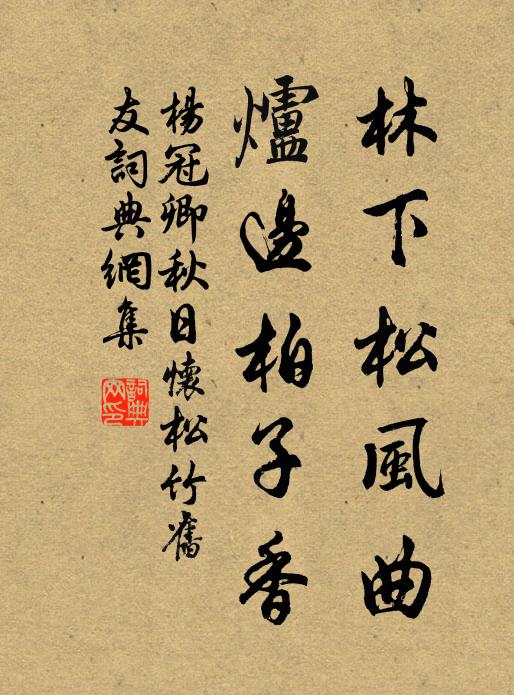 林下松風曲
爐邊柏子香
楊冠卿秋日懷松竹舊
友詞典網集
詞典
网印